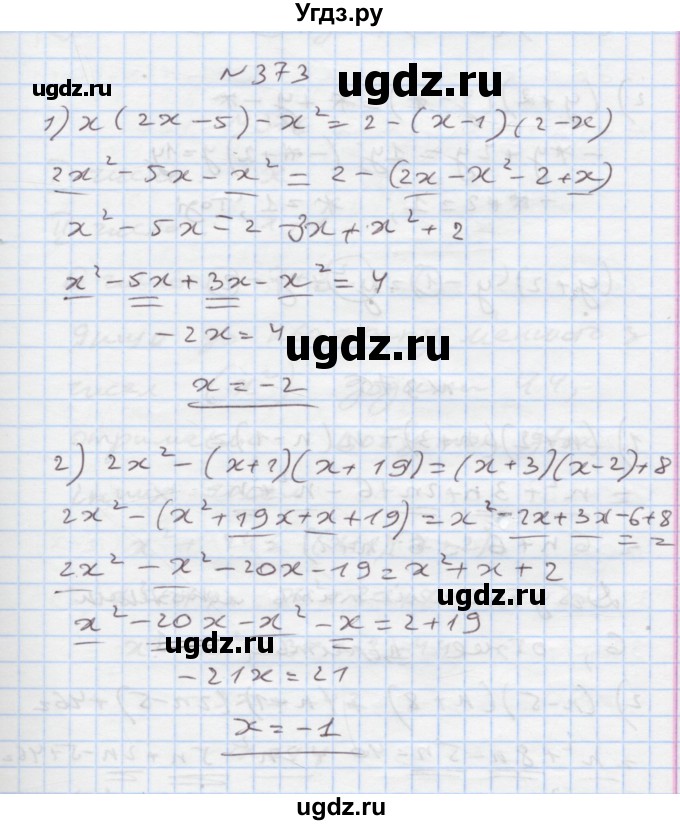 Угдз.ру
ugdz.ru
№373
ugdz.ru
ugdz.ru
1) x(2x-5)-x²=2-(x-1)(2-x)
2x²-5x-x²=2-(2x-x²-2+x)
x²-5x=2-3x+x²+2
x²-5x+3x-x²=4
-2x=4
ugdz.ru
x=-2
2) 2x²-(x+1)(x+19)=(x+3)(x-2)+8
2x²-(x²+19x+x+19)=x²-2x+3x-6+8
2x²-x²-20x-19=x²+x+2
x²-20x-x²-x=2+19
ugdz.ru
ugdz.ru
-21x=21
x=-1
ugdz.ru
ugdz.ru